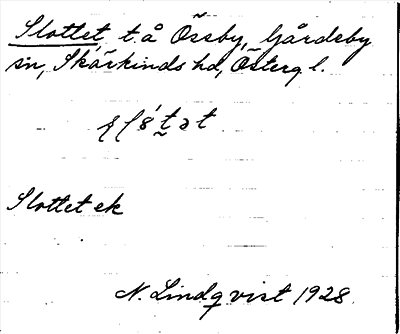 Slottet, t. å Össby, Gårdeby
sn, Skärkinds hd, Österg l.
Slottet ek
N. Lindqvist 1928.